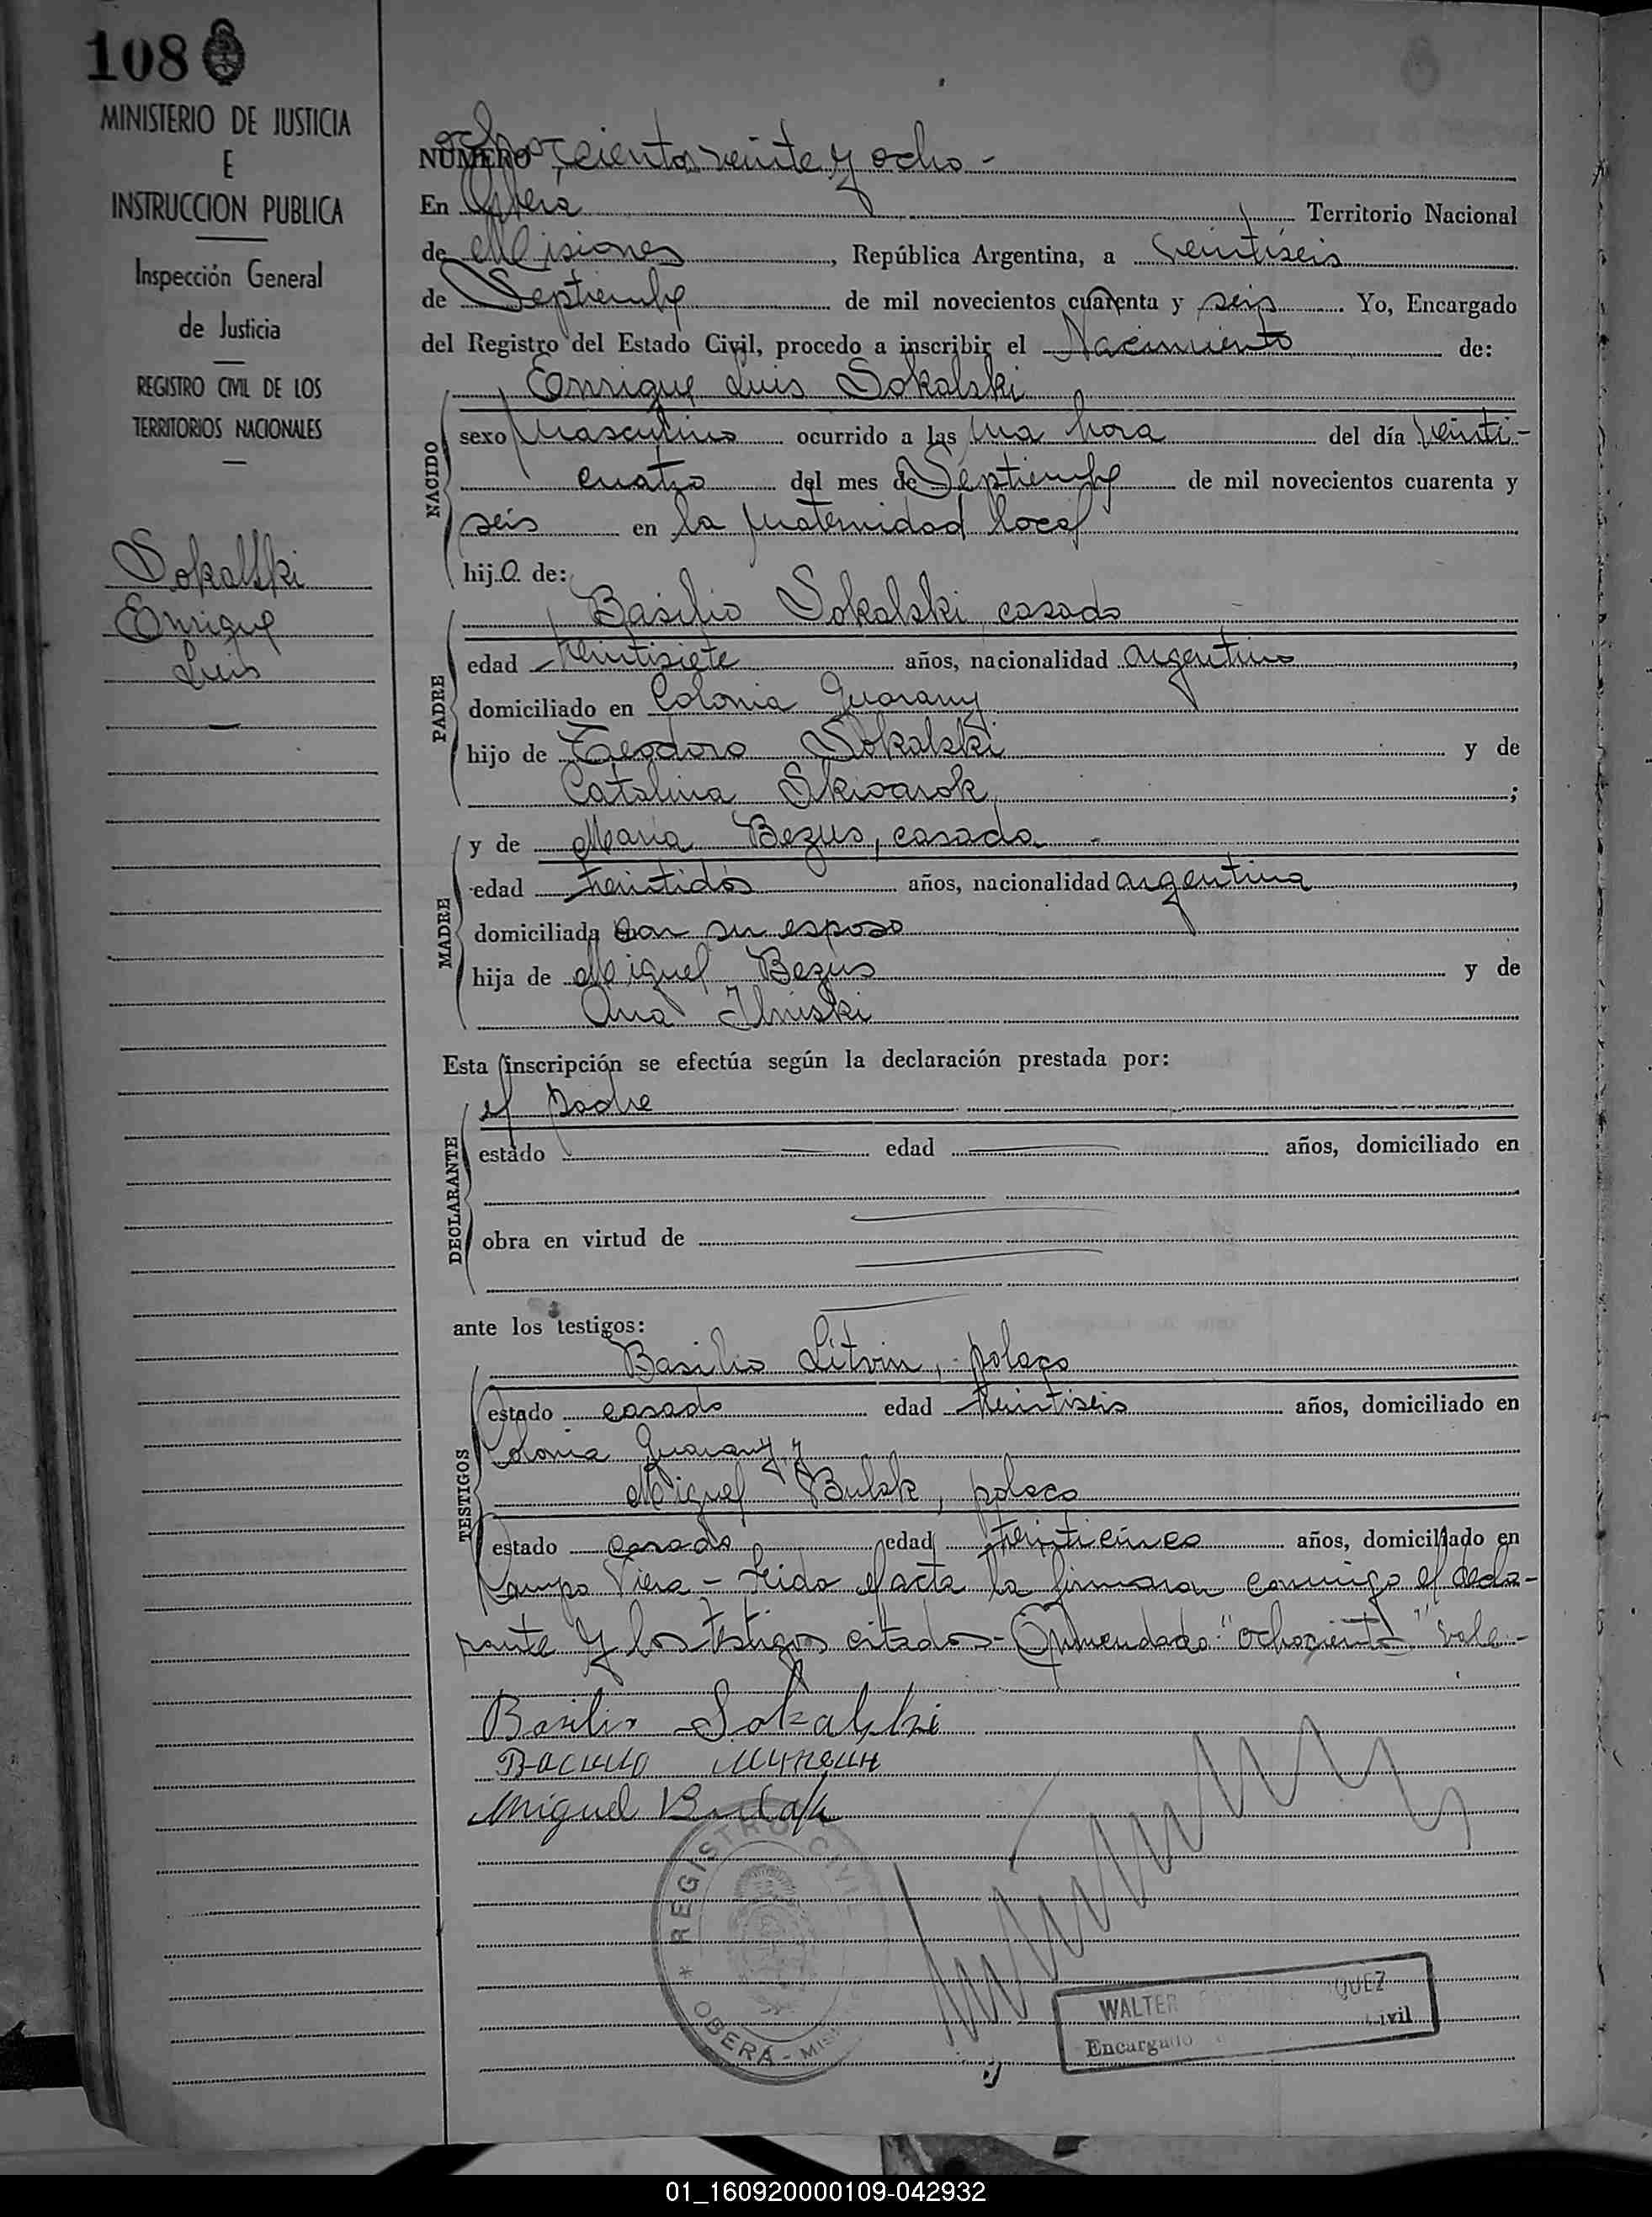 108
MINISTERIO DE JUSTICIA
E
INSTRUCCION PUBLICA
Inspección General
de Justicia
REGISTRO CIVIL DE LOS
TERRITORIOS NACIONALES
Sokalski
Enrique
Luis
NÚMERO ochocientos veinte y ocho -
En Oberá Territorio Nacional
de Misiones, República Argentina, a veintiseis
de Septiembre de mil novecientos cuarenta y seis. Yo, Encargado
del Registro del Estado Civil, procedo a inscribir el Nacimiento de:
NACIDO
Enrique Luis Sokalski
sexo Masculino ocurrido a las una hora del día veinti-
cuatro del mes de Septiembre de mil novecientos cuarenta y
seis en la Maternidad local
hijo de:
PADRE
Basilio Sokalski, casado
edad veintisiete años, nacionalidad argentino,
domiciliado en Colonia Guarany
hijo de Teodoro Sokalski y de
Catalina Skiwarok;
MADRE
y de María Bezus, casada -
edad veintidós años, nacionalidad argentina,
domiciliada con su esposo
hija de Miguel Bezus y de
Ana Ilniski
Esta inscripción se efectúa según la declaración prestada por:
DECLARANTE
el padre
estado edad años, domiciliado en
obra en virtud de
ante los testigos:
TESTIGOS
Basilio Litvin, polaco
estado casado edad treintiseis años, domiciliado en
Colonia Guarany, y
Miguel Bulak, polaco
estado casado edad treinticinco años, domiciliado en
Campo Viera - Leida el acta la firmaron conmigo el decla-
rante y los testigos citados - Enmendado: "ochociento" vale -
Basilio Sokalski
Miguel Bulak
REGISTRO CIVIL
* OBERÁ - MIS
WALTER QUEZ
Encargado Civil
01_160920000109-042932